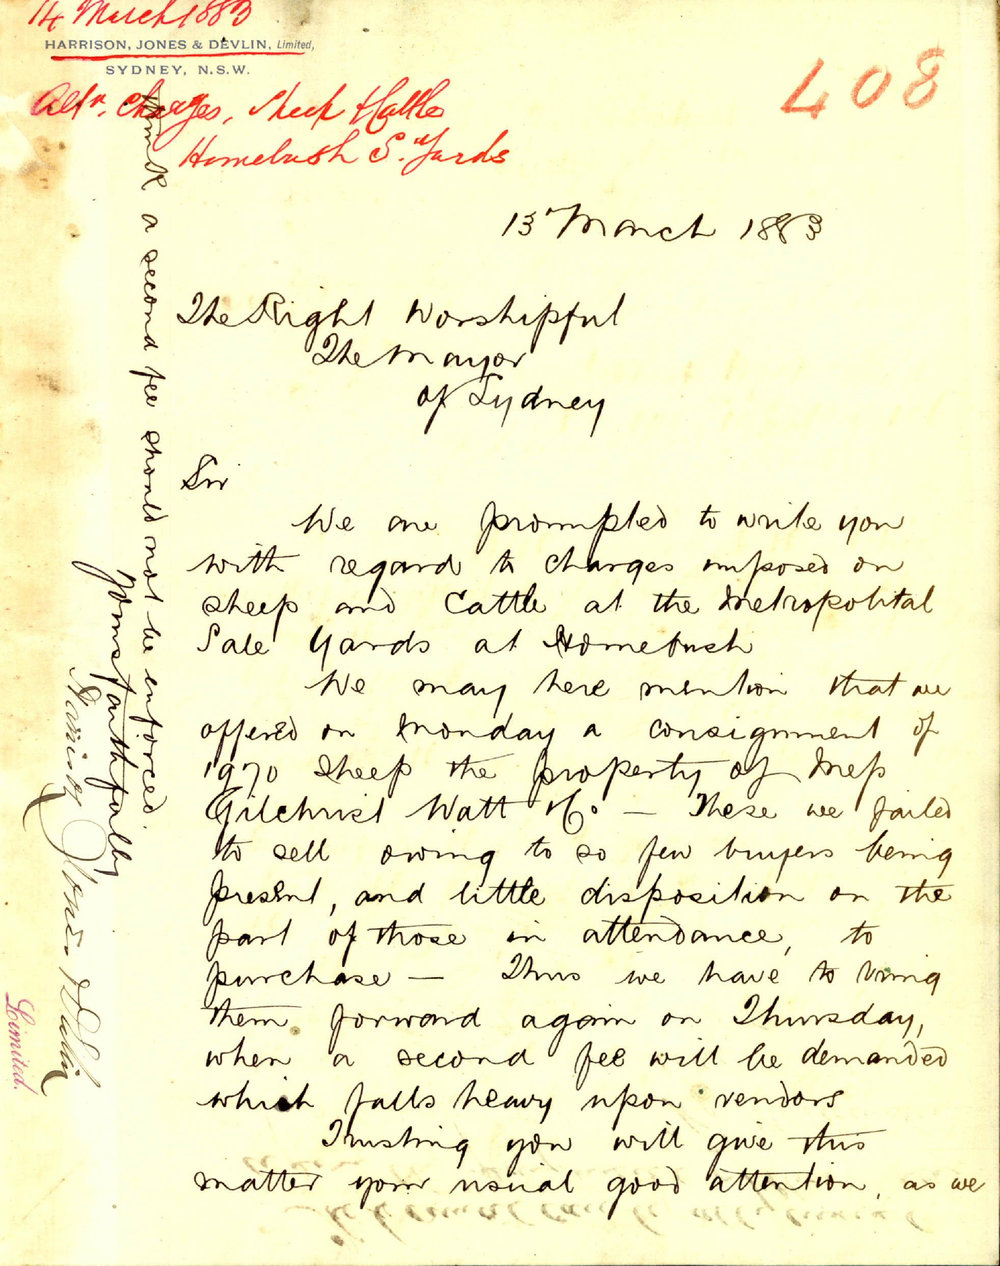 14 March 1883
HARRISON, JONES & DEVLIN, Limited,
SYDNEY, N.S.W.
408
charges, Sheep & Cattle
Homebush S. Yards
13 March 1883
The Right Worshipful
The Mayor
of Sydney
Sir
We are prompted to write you
with regard to charges imposed on
sheep and Cattle at the Metropolital
Sale Yards at Homebush
We may here mention that we
offered on Monday a consignment of
1970 Sheep the property of Mess
Gilchrist Watt & Co — These we failed
to sell owing to so few buyers being
present, and little disposition on the
part of those in attendance, to
purchase — Thus we have to bring
them forward again on Thursday,
when a second fee will be demanded
which falls heavy upon vendors
Trusting you will give this
matter your usual good attention, as we
think a second fee should not be enforced.
Yours faithfully
Harrison Jones & Devlin
Limited.